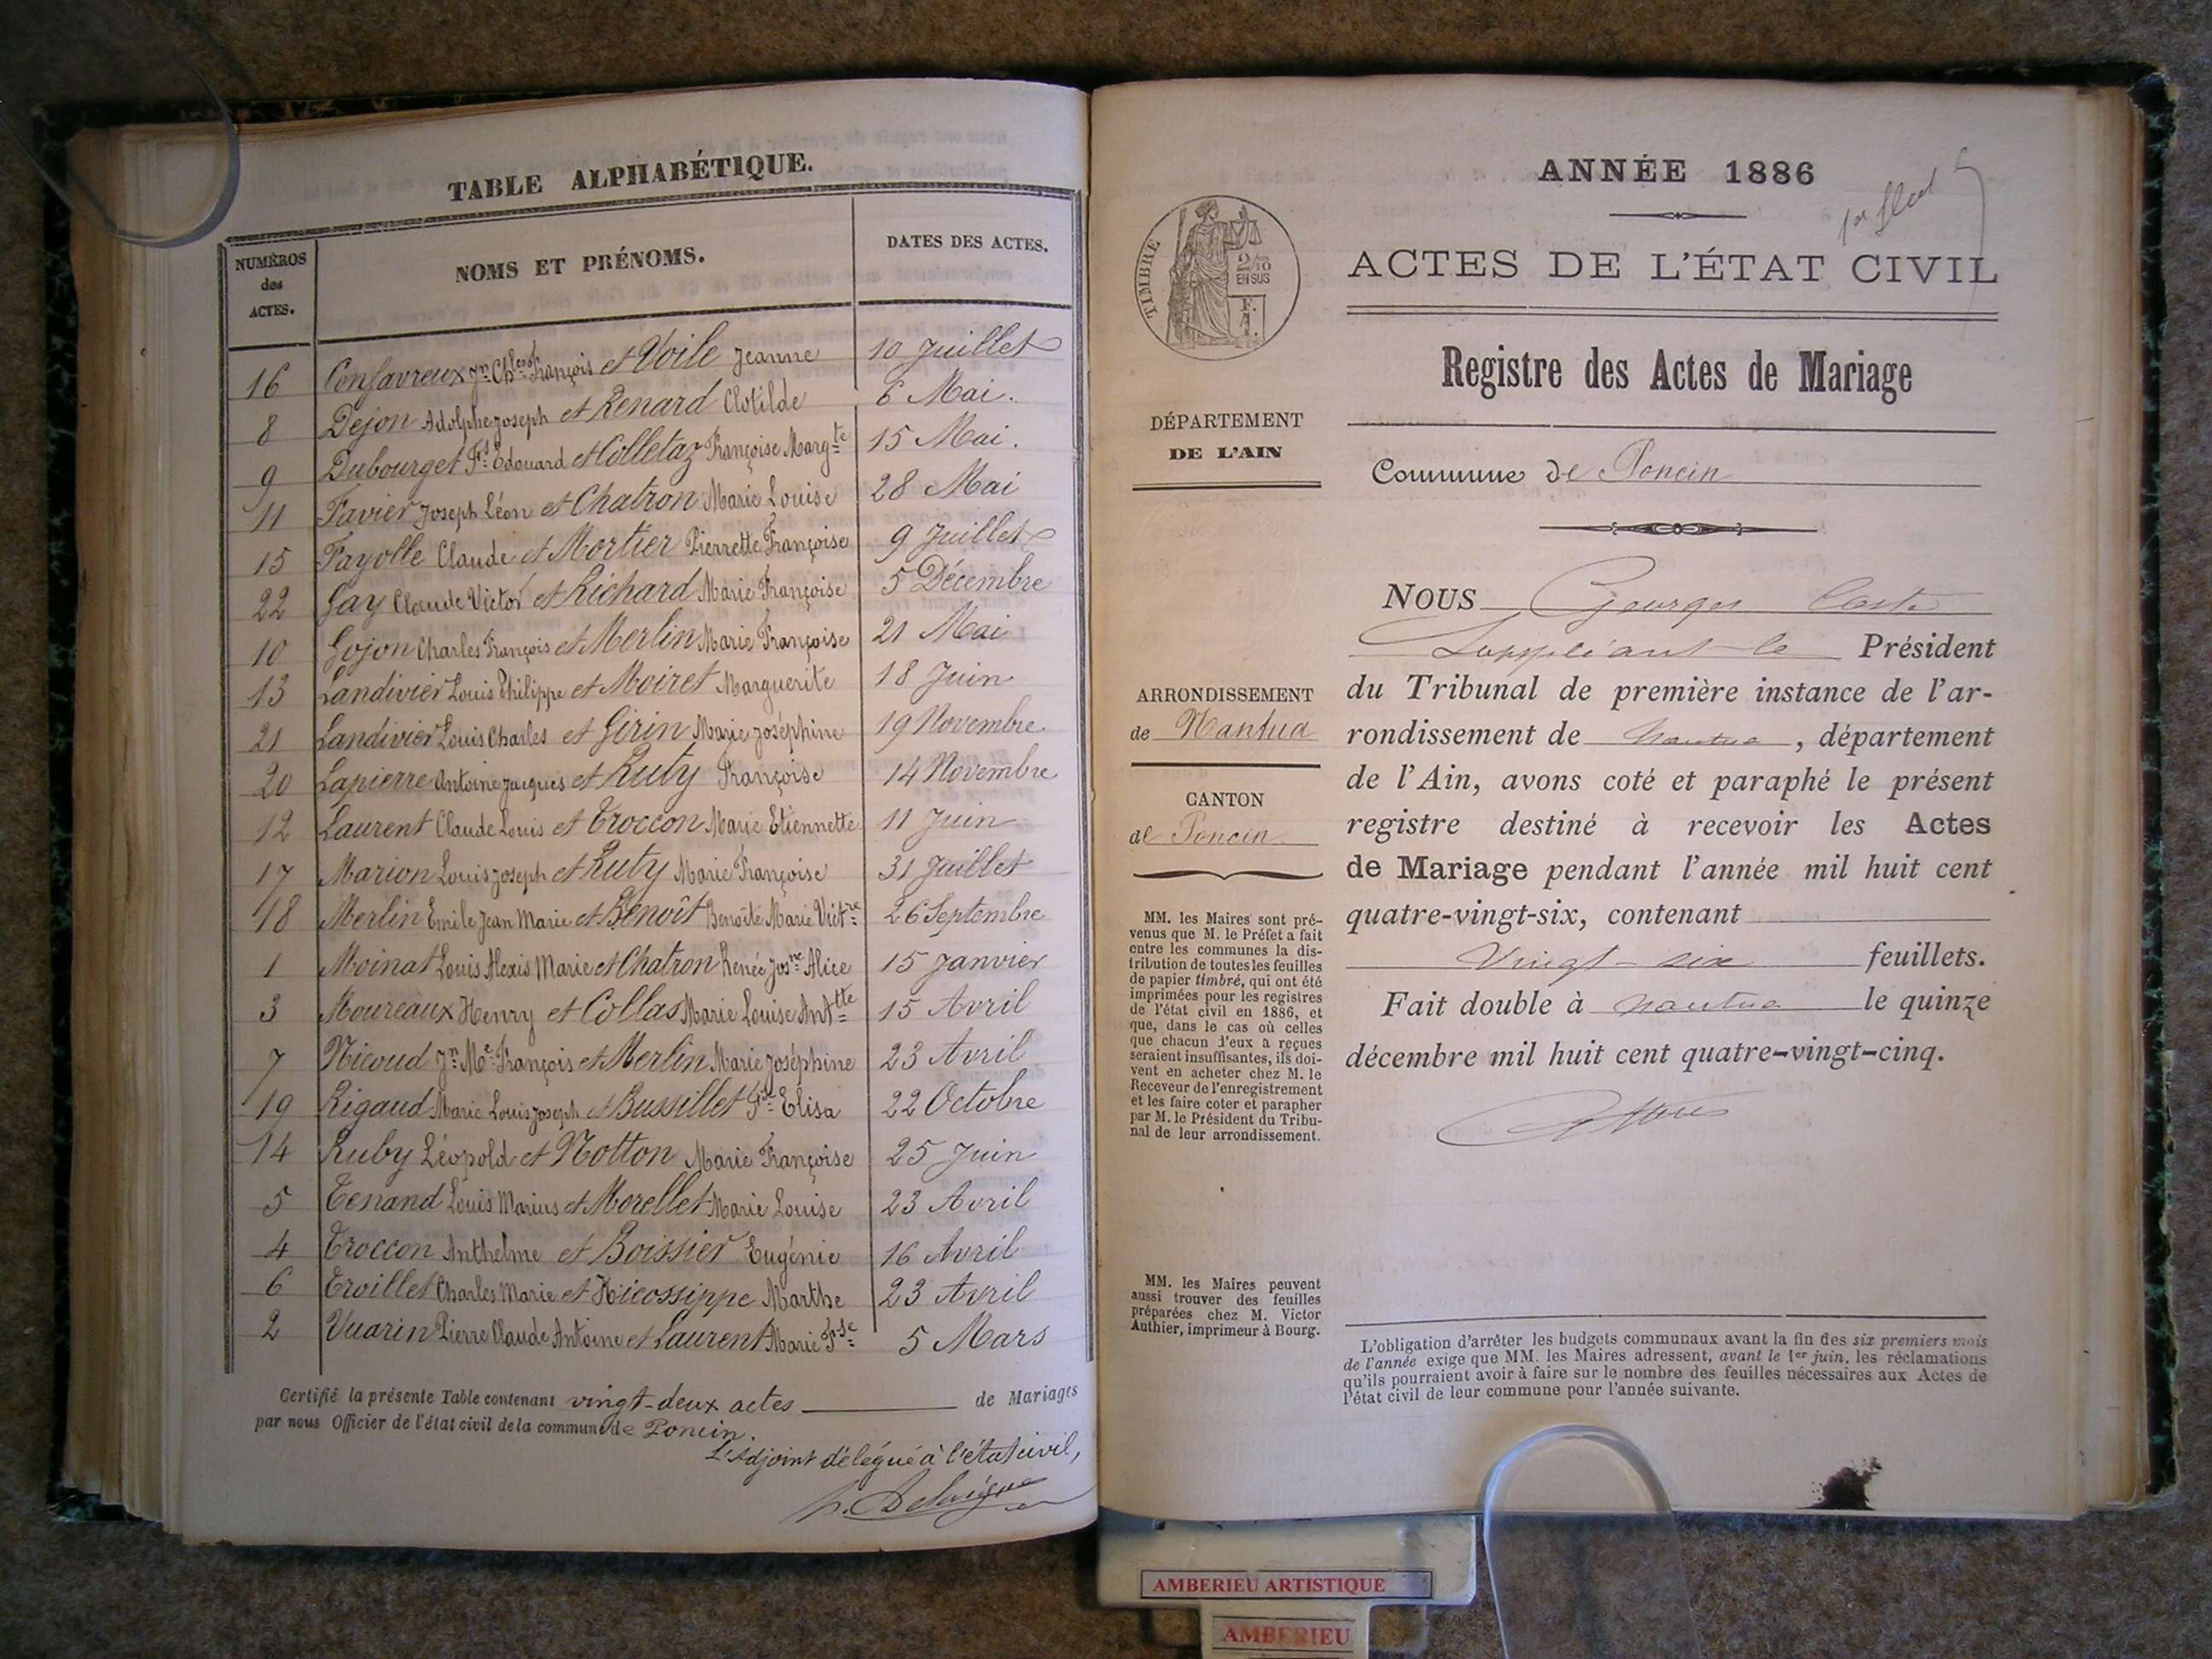 TABLE ALPHABÉTIQUE.
NUMÉROS des ACTES.
NOMS ET PRÉNOMS.
DATES DES ACTES.
16 Confavreux Jn Chles François et Voile Jeanne 10 Juillet
8 Dejon Adolphe Joseph et Renard Clotilde 6 Mai.
9 Dubourget Fs Edouard et Colletaz Françoise Margte 15 Mai.
11 Favier Joseph Léon et Chatron Marie Louise 28 Mai
15 Fayolle Claude et Mortier Pierrette Françoise 9 Juillet
22 Gay Claude Victor et Richard Marie Françoise 5 Décembre
10 Gojon Charles François et Merlin Marie Françoise 21 Mai
13 Landivier Louis Philippe et Moiret Marguerite 18 Juin
21 Landivier Louis Charles et Girin Marie Joséphine 19 Novembre
20 Lapierre Antoine Jacques et Ruty Françoise 14 Novembre
12 Laurent Claude Louis et Troccon Marie Etiennette 11 Juin
17 Marion Louis Joseph et Ruty Marie Françoise 31 Juillet
18 Merlin Emile Jean Marie et Benoît Benoîte Marie Victre 26 Septembre
1 Moinat Louis Alexis Marie et Chatron Renée Josne Alice 15 Janvier
3 Moureaux Henry et Collas Marie Louise Antte 15 Avril
7 Nicoud Jn Me François et Merlin Marie Joséphine 23 Avril
19 Rigaud Marie Louis Joseph et Bussillet Fse Elisa 22 Octobre
14 Ruby Léopold et Notton Marie Françoise 25 Juin
5 Tenand Louis Marius et Morellet Marie Louise 23 Avril
4 Troccon Anthelme et Boissier Eugénie 16 Avril
6 Troillet Charles Marie et Nicossippe Marthe 23 Avril
2 Vuarin Pierre Claude Antoine et Laurent Marie Fse 5 Mars
Certifié la présente Table contenant vingt-deux actes de Mariages
par nous Officier de l'état civil de la commune de Poncin.
L'Adjoint délégué à l'état civil,
ANNÉE 1886
TIMBRE
2/10
EN SUS
ACTES DE L'ÉTAT CIVIL
Registre des Actes de Mariage
Commune de Poncin
DÉPARTEMENT
DE L'AIN
ARRONDISSEMENT
de Nantua
CANTON
de Poncin
MM. les Maires sont pré-
venus que M. le Préfet a fait
entre les communes la dis-
tribution de toutes les feuilles
de papier timbré, qui ont été
imprimées pour les registres
de l'état civil en 1886, et
que, dans le cas où celles
que chacun d'eux a reçues
seraient insuffisantes, ils doi-
vent en acheter chez M. le
Receveur de l'enregistrement
et les faire coter et parapher
par M. le Président du Tribu-
nal de leur arrondissement.
MM. les Maires peuvent
aussi trouver des feuilles
préparées chez M. Victor
Authier, imprimeur à Bourg.
NOUS Georges
Suppléant le Président
du Tribunal de première instance de l'ar-
rondissement de Nantua, département
de l'Ain, avons coté et paraphé le présent
registre destiné à recevoir les Actes
de Mariage pendant l'année mil huit cent
quatre-vingt-six, contenant
Vingt-six feuillets.
Fait double à Nantua le quinze
décembre mil huit cent quatre-vingt-cinq.
L'obligation d'arrêter les budgets communaux avant la fin des six premiers mois
de l'année exige que MM. les Maires adressent, avant le 1er juin, les réclamations
qu'ils pourraient avoir à faire sur le nombre des feuilles nécessaires aux Actes de
l'état civil de leur commune pour l'année suivante.
AMBERIEU ARTISTIQUE
AMBERIEU